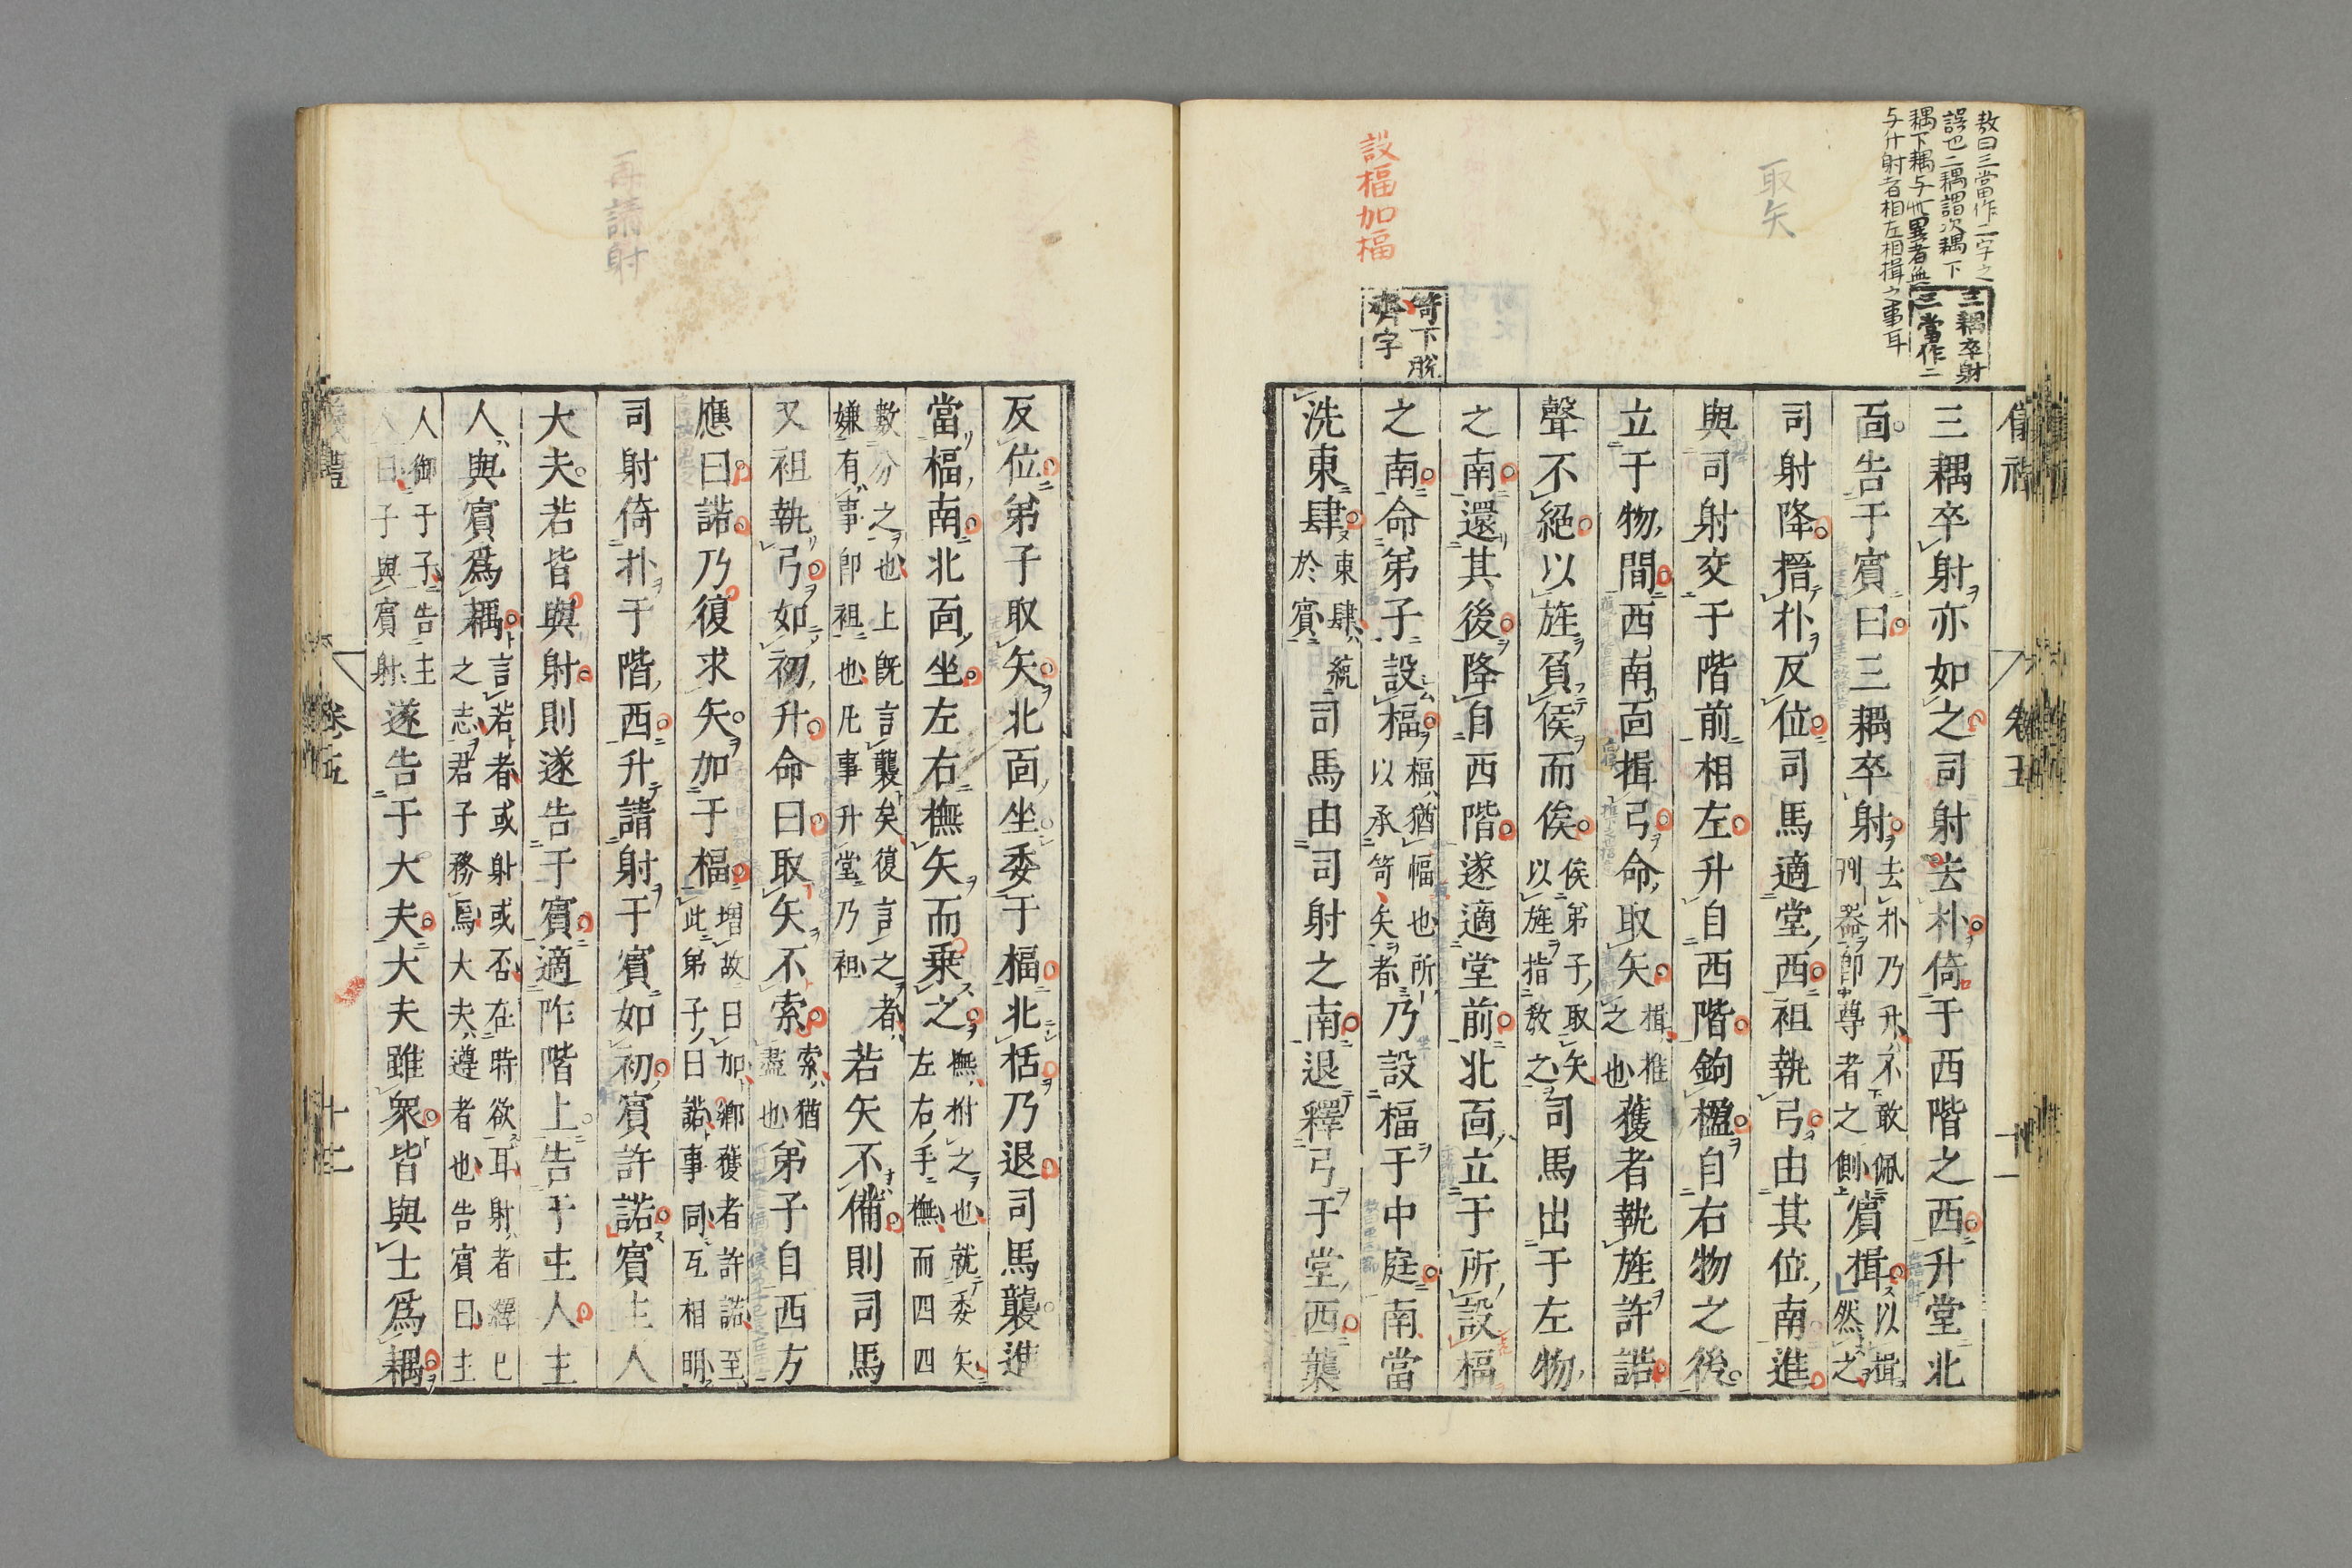 敖曰三當作二字之
誤也二耦謂次耦下
耦下耦与此異者無
与升射者相左相揖之事耳
取矢
三耦卒射
三當作二
設楅加楅
笴下脫
齊字
三耦卒射亦如之司射去扑倚于西階之西升堂北
面告于賓曰三耦卒射去扑乃升不敢佩
刑器即尊者之側賓揖以揖
然之
司射降搢扑反位司馬適堂西袒執弓由其位南進
與司射交于階前相左升自西階鉤楹自右物之後
立于物間西南面揖弓命取矢揖推
之也獲者執旌許諾
聲不絕以旌負侯而俟侯弟子取矢
以旌指教之司馬出于左物
之南還其後降自西階遂適堂前北面立于所設楅
之南命弟子設楅楅猶幅也所
以承笴矢者乃設楅于中庭南當
洗東肆東肆統
於賓司馬由司射之南退釋弓于堂西襲
反位弟子取矢北面坐委于楅北括乃退司馬襲進
當楅南北面坐左右撫矢而乘之撫拊之也就委矢
左右手撫而四四
數分之也上既言襲矣復言之者
嫌有事即袒也凡事升堂乃袒若矢不備則司馬
又袒執弓如初升命曰取矢不索索猶
盡也弟子自西方
應曰諾乃復求矢加于楅增故曰加鄉獲者許諾至
此弟子曰諾事同互相明
司射倚扑于階西升請射于賓如初賓許諾賓主人
大夫若皆與射則遂告于賓適阼階上告于主人主
人與賓爲耦言若者或射或否在時欲耳射者繹己
之志君子務焉大夫遵者也告賓曰主
人御于子告主
人曰子與賓射遂告于大夫大夫雖衆皆與士爲耦
再請射
卷五
十二